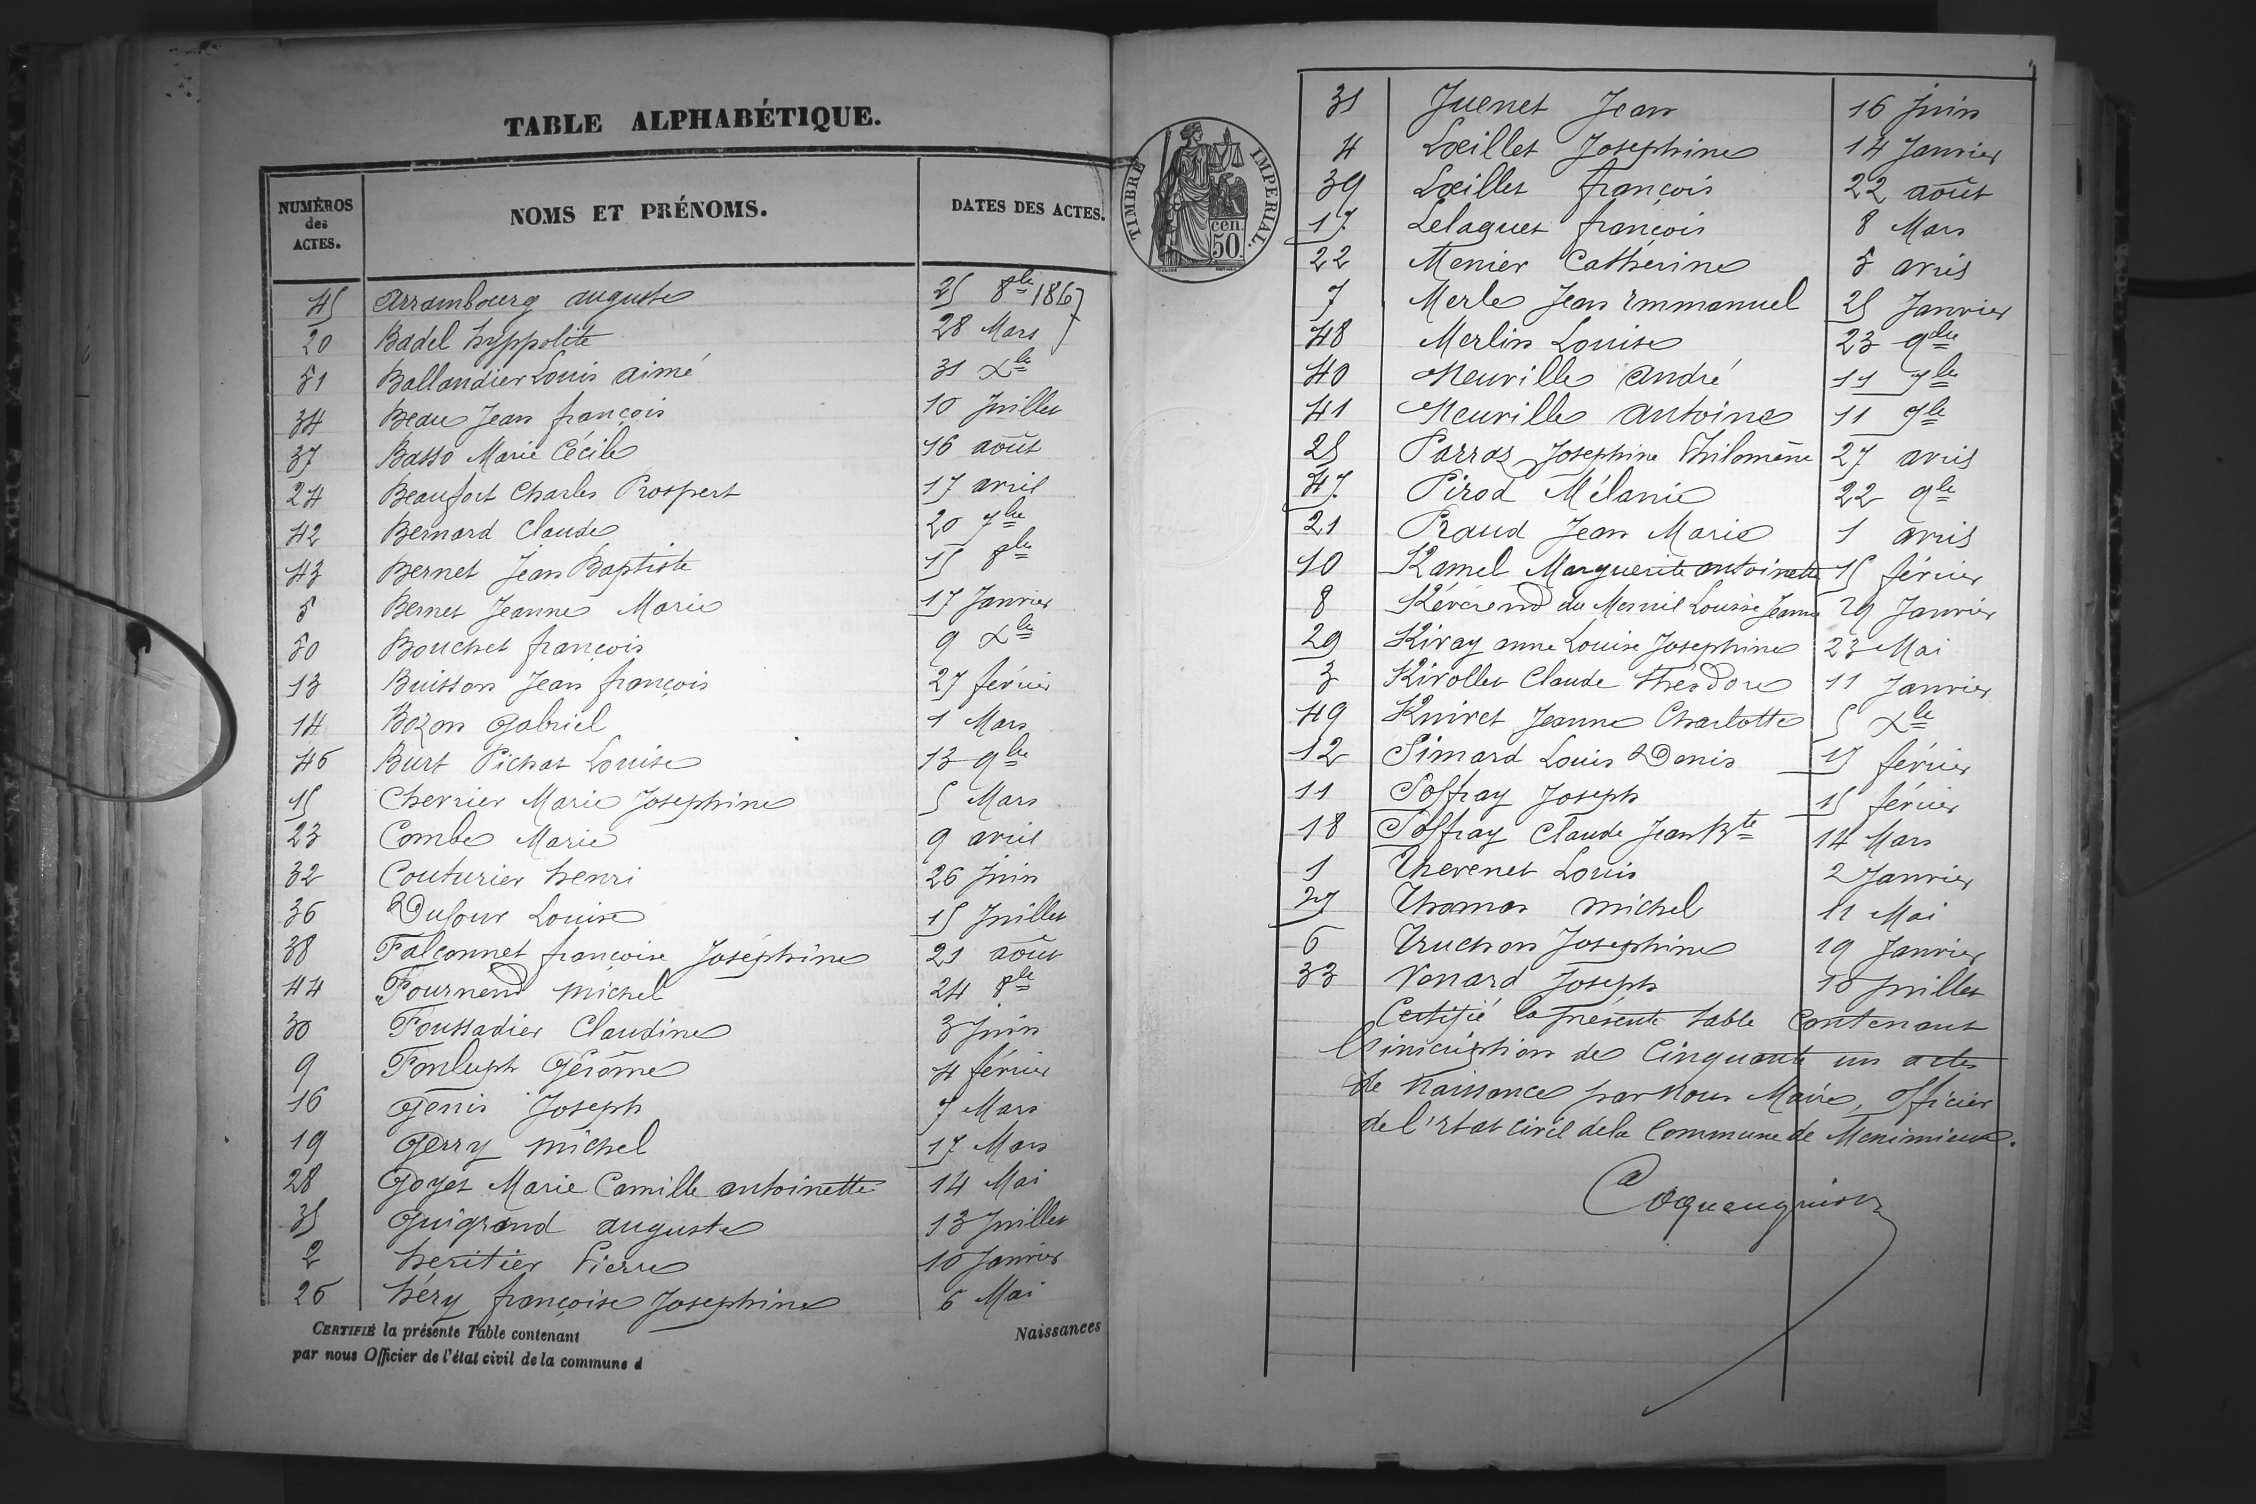 TABLE ALPHABÉTIQUE.
NUMÉROS des ACTES. NOMS ET PRÉNOMS. DATES DES ACTES.
45 Arrambourg auguste 25 8bre 1867
20 Badel hyppolite 28 Mars
51 Ballandier Louis aimé 31 Xbre
34 Beau Jean françois 10 Juillet
37 Basso Marie Cécile 16 août
24 Beaufort Charles Prospert 17 avril
42 Bernard Claude 20 7bre
43 Bernet Jean Baptiste 15 8bre
5 Bernet Jeanne Marie 17 Janvier
50 Bouchet françois 9 Xbre
13 Buisson Jean françois 27 févrıer
14 Bozon gabriel 1 Mars
46 Burt Pichat Louise 13 9bre
15 Chervier Marie Josephine 5 Mars
23 Combe Marie 9 avril
32 Couturier henri 26 Juin
36 Dufour Louise 15 Juillet
38 Falconnet françoise Joséphine 21 août
44 Fournend Michel 24 8bre
30 Foussadier Claudine 3 Juin
9 Fonluph Gérôme 4 février
16 Genis Joseph 7 Mars
19 Gerry Michel 17 Mars
28 Goyet Marie Camille antoinette 14 Mai
35 Guigrand auguste 13 Juillet
2 heritier Pierre 10 Janvier
26 héry françoise Josephine 6 Mai
CERTIFIÉ la présente Table contenant Naissances
par nous Officier de l'état civil de la commune d
TIMBRE IMPERIAL.
50 cen.
31 Juenet Jean 16 Juin
4 Lœillet Josephine 14 Janvier
39 Lœillet françois 22 août
17 Lelaguet françois 8 Mars
22 Menier Catherine 5 avril
7 Merle Jean Emmanuel 25 Janvier
48 Merlin Louise 23 9bre
40 Neuville André 11 7bre
41 Neuville antoine 11 7bre
25 Parraz Josephine Philomène 27 avril
47 Pirod Mélanie 22 9bre
21 Praud Jean Marie 1 avril
10 Ramel Marguerite antoinette 15 février
8 Révérend du Mesnil Louise Jeanne 29 Janvier
29 Rivay anne Louise Josephine 23 Mai
3 Rivollet Claude théodore 11 Janvier
49 Ruivet Jeanne Charlotte 5 Xbre
12 Simard Louis Denis 15 février
11 Soffray Joseph 15 février
18 Soffray Claude Jean Bte 14 Mars
1 Thevenet Louis 2 Janvier
27 Thomas Michel 11 Mai
6 Truchon Josephine 19 Janvier
33 Vonard Joseph 10 Juillet
Certifié la présente table Contenant
l'inscription de Cinquante un actes
de naissance par Nous Maire, officier
de l'Etat civil de la Commune de Meximieux.